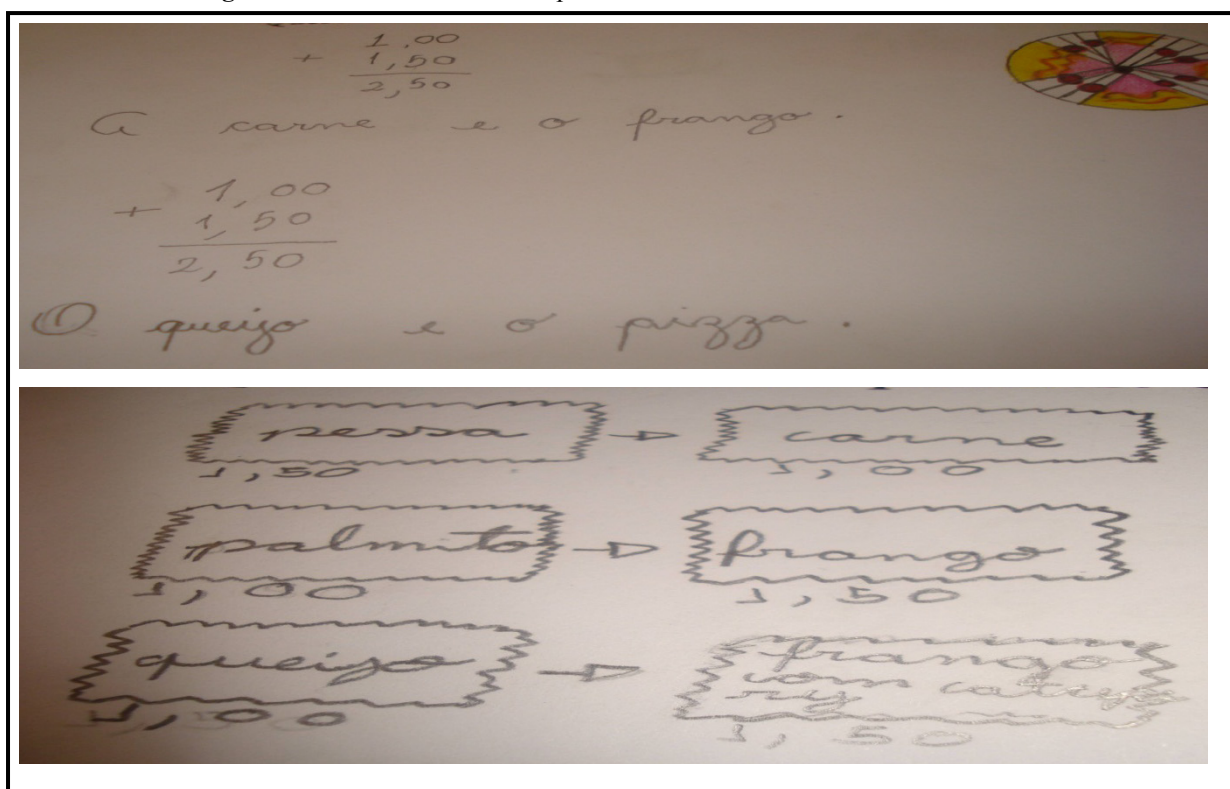 1,00
+ 1,50
2,50
A carne e o frango.
1,00
+ 1,50
2,50
O queijo e o pizza.
pessa → carne
1,50 1,00
palmito → frango
1,00 1,50
queijo → frango
com catupy
ry
1,00 1,50